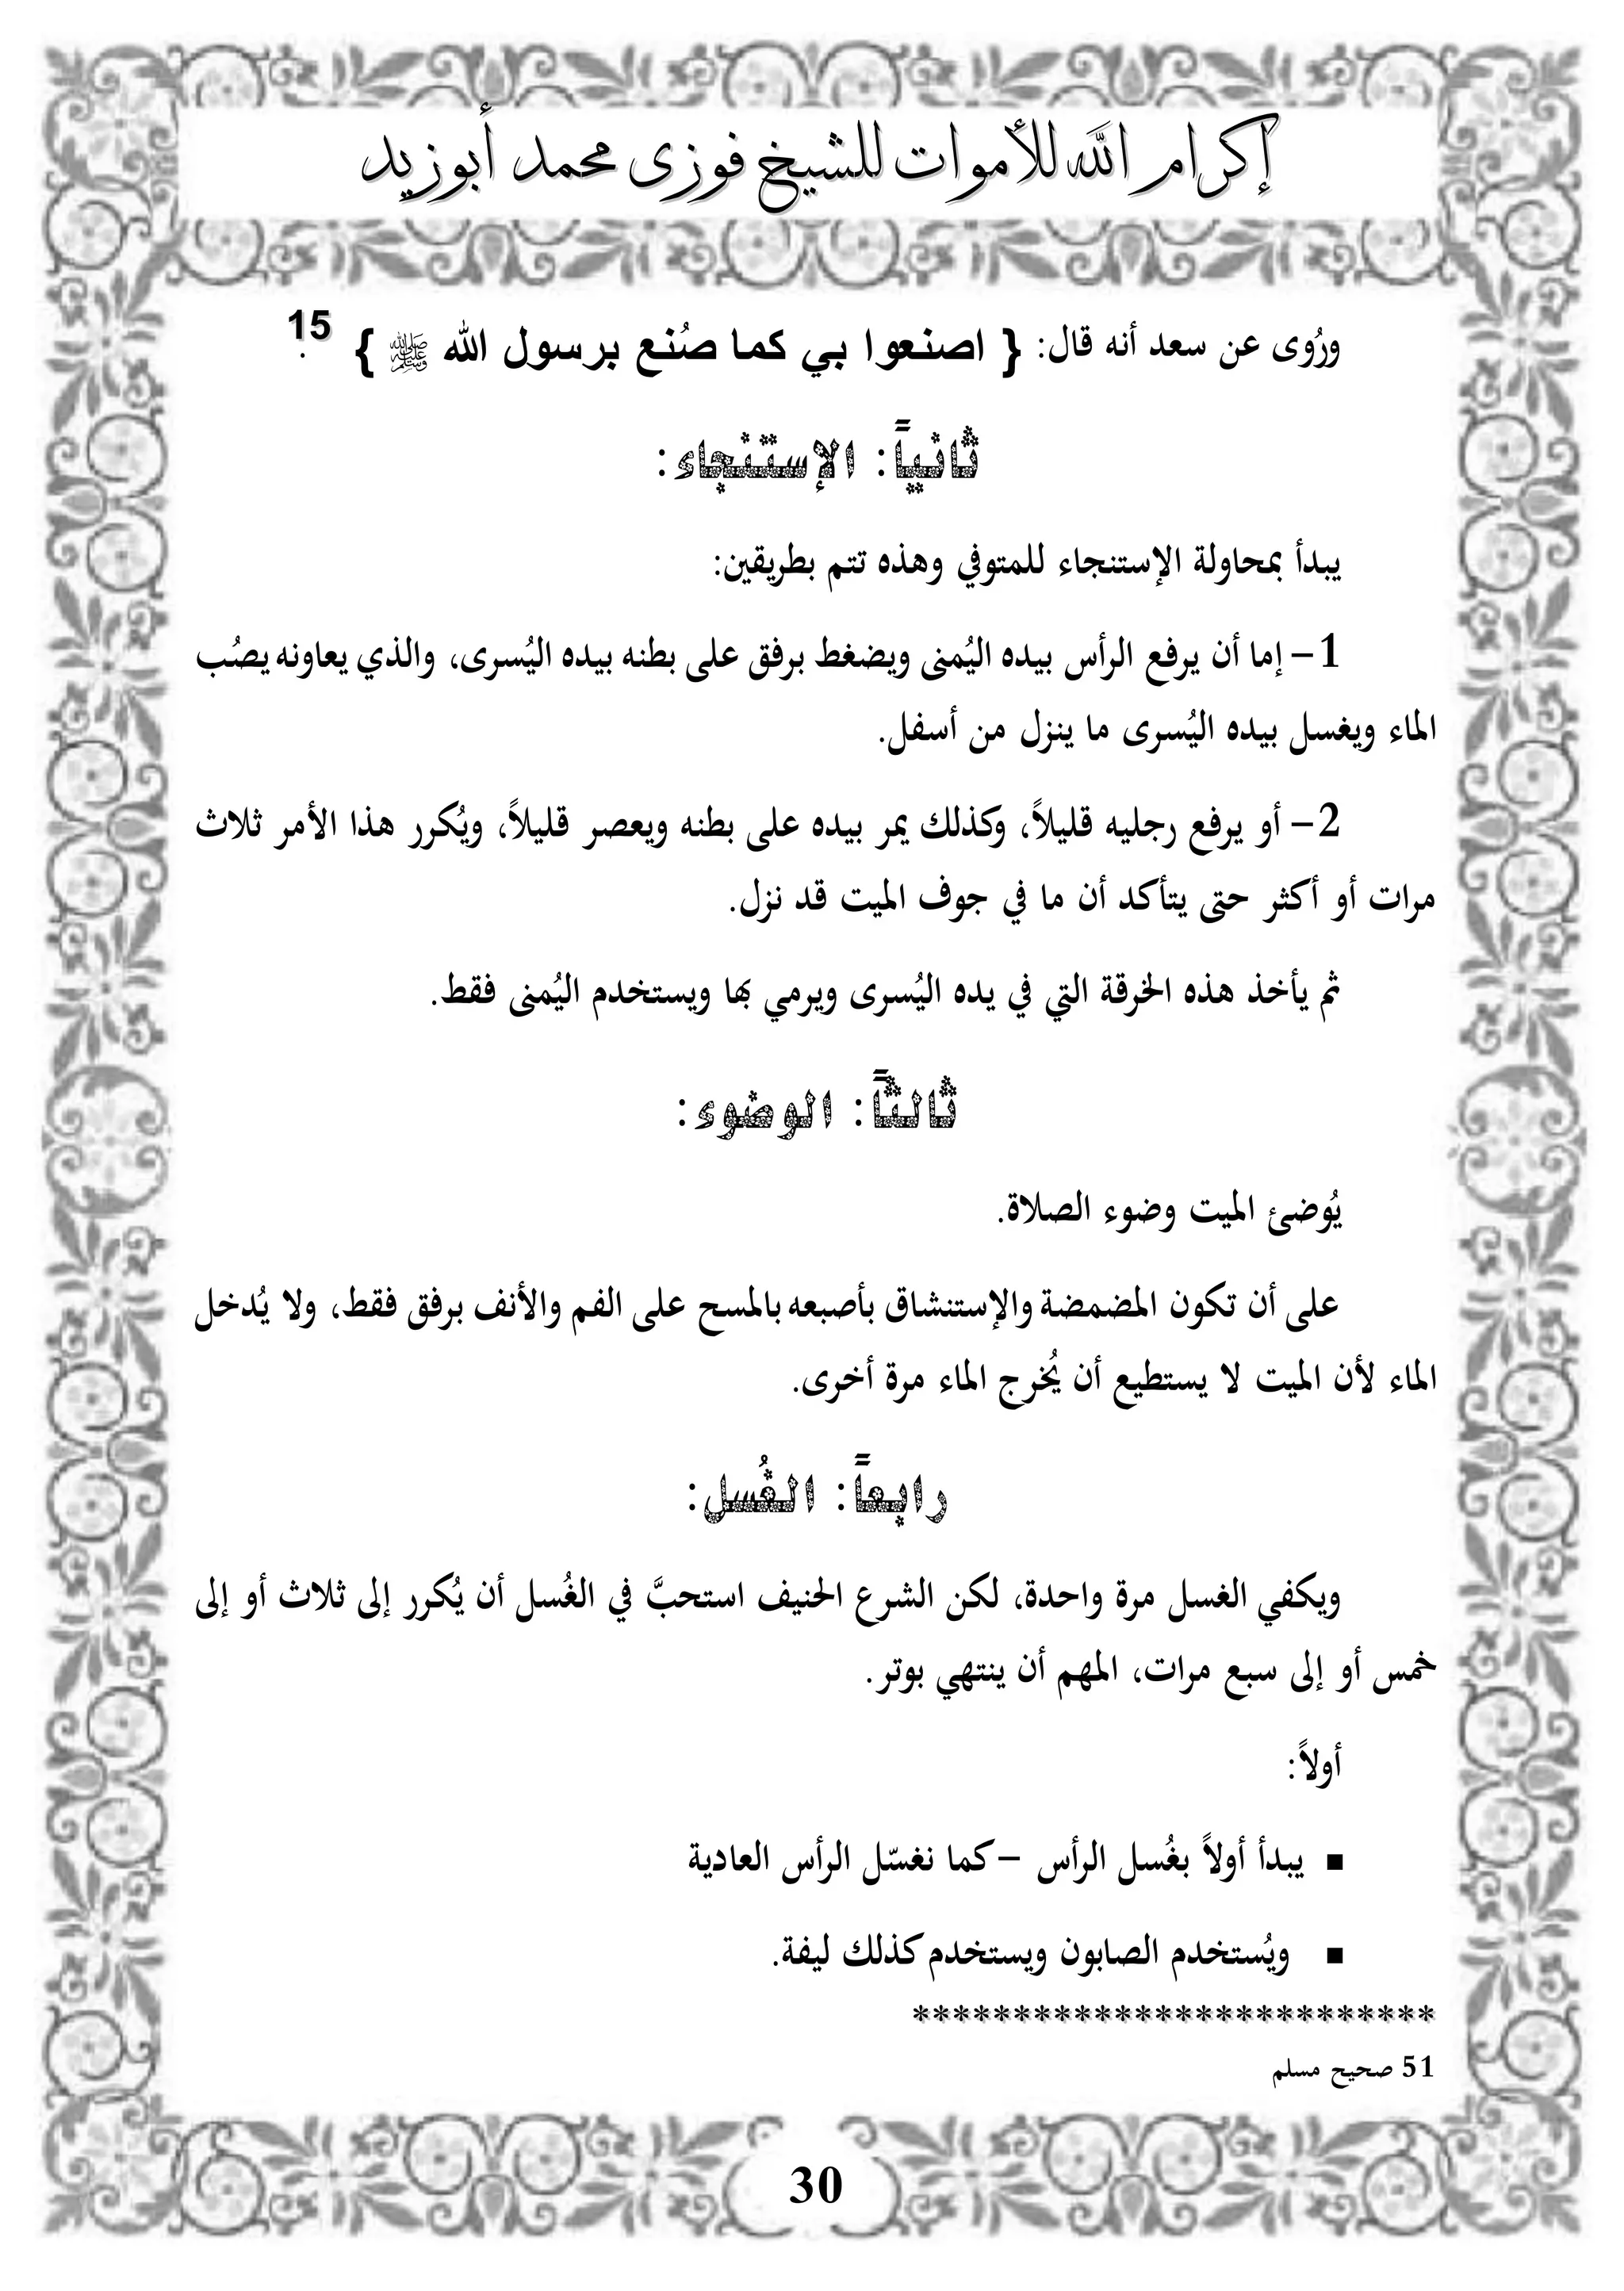 إكرام الله للأموات للشيخ فوزى محمد أبوزيد
ورُوى عن سعد أنه قال: { اصنعوا بي كما صُنع برسول الله ﷺ } 15.
ثانياً: الإستنجاء:
يبدأ بمحاولة الإستنجاء للمتوفي وهذه تتم بطريقين:
1- إما أن يرفع الرأس بيده اليُمنى ويضغط برفق على بطنه بيده اليُسرى، والذي يعاونه يصُب
الماء ويغسل بيده اليُسرى ما ينزل من أسفل.
2- أو يرفع رجليه قليلاً، وكذلك يمر بيده على بطنه ويعصر قليلاً، ويُكرر هذا الأمر ثلاث
مرات أو أكثر حتى يتأكد أن ما في جوف الميت قد نزل.
ثم يأخذ هذه الخرقة التي في يده اليُسرى ويرمي بها ويستخدم اليُمنى فقط.
ثالثاً: الوضوء:
يُوضئ الميت وضوء الصلاة.
على أن تكون المضمضة والإستنشاق بأصبعه بالمسح على الفم والأنف برفق فقط، ولا يُدخل
الماء لأن الميت لا يستطيع أن يُخرج الماء مرة أخرى.
رابعاً: الغُسل:
ويكفي الغسل مرة واحدة، لكن الشرع الحنيف استحبَّ في الغُسل أن يُكرر إلى ثلاث أو إلى
خمس أو إلى سبع مرات، المهم أن ينتهي بوتر.
أولاً:
▪ يبدأ أولاً بغُسل الرأس – كما نغسّل الرأس العادية
▪ ويُستخدم الصابون ويستخدم كذلك ليفة.
**************************
51 صحيح مسلم
30